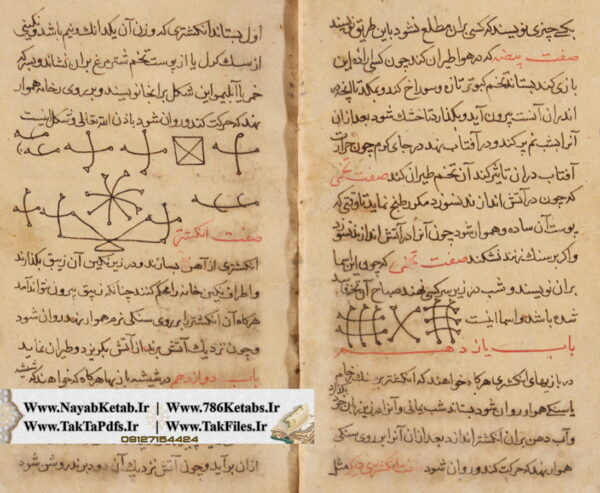 بکسی چیزی نویسند که کسی بران مطلع نشود باین طریق نویسند
صفت بیضه که در هوا طیران کند چون کسی را اراده این
بازی کند بستاند تخم کبوتر تازه و سوراخ کند و بکذارد تا آنچه
اندران آنست بیرون آید و بکذارد تا خشک شود بعد ازان
آنرا شبنم پر کند و در آفتاب نهد در جای کرم چون حرارت
آفتاب دران تاثیر کند آن تخم طیران کند صفت تخمی
که چون در آتش اندازند نسوزد مکرر طبخ نماید تا وقتی که
پوست آن ساده و هموار شود چون آنرا در آتش اندازند نسوزد
و اکر بر سنک زنند نشکند صفت تخمی که چون این اسما
بران نویسند و شب در زیر سر کسی نهند صباح آن تخم
شده باشد و اسما اینست
باب یازدهم
در بازیهای انکشتری هرکاه خواهند که انکشتر بر سنک حمام
یا سنکی هموار روان شود بستاند شب یمانی و آنرا در زیر زبان
و آب دهن بران انکشتر اندازد بعد ازان آنرا بر روی سنکی
هموار نهد که حرکت کند و روان شود صفت انکشتری دیکر مثل
اول بستاند انکشتری که وزن آن یک دانک و نیم باشد و نکینی
از سنک کول یا از پوست تخم شترمرغ بران نشاند و بر که
خمر یا آبلیمو این شکل بر انجا نویسد و بر روی رخامه هموار
نهد که حرکت کند و روان شود باذن الله تعالی و شکل اینست
صفت انکشتر
انکشتری از آهن بسازند و در زیر نکین آن زیبق بکذارند
و اطراف نکین خانه را محکم کنند چنانکه زیبق بیرون نتواند آمد
هرکاه آن انکشتر را بر روی سنکی نرم هموار نهند روان شود
و چون نزدیک آتش برند از آتش بکریزد و طیران نماید
باب دوازدهم در شیشه بازیها هرکاه که خواهند که شیشه
ازان برآید و چون آتش نزدیک آن دود برند روشن شود
www.NayabKetab.Ir | www.786Ketabs.Ir
www.TakTaPdfs.Ir | www.TakFiles.Ir
09127154424